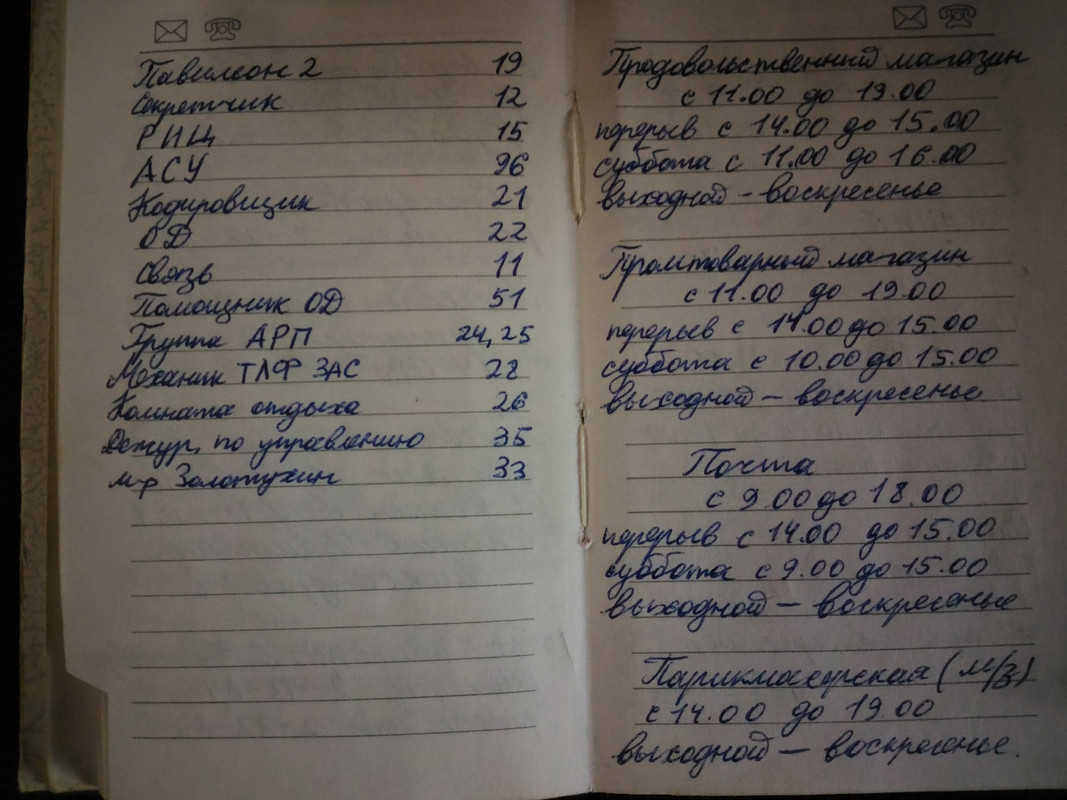 Павильон 2 19
Секретчик 12
РИЦ 15
АСУ 96
Кодировщик 21
ОД 22
Связь 11
Помощник ОД 51
Группа АРП 24, 25
Механик ТЛФ ЗАС 28
Комната отдыха 26
Дежур. по управлению 35
м-р Золотухин 33
Продовольственный магазин
с 11.00 до 19.00
перерыв с 14.00 до 15.00
суббота с 11.00 до 16.00
выходной - воскресенье
Промтоварный магазин
с 11.00 до 19.00
перерыв с 14.00 до 15.00
суббота с 10.00 до 15.00
выходной - воскресенье
Почта
с 9.00 до 18.00
перерыв с 14.00 до 15.00
суббота с 9.00 до 15.00
выходной - воскресенье
Парикмахерская (м/з)
с 14.00 до 19.00
выходной - воскресенье.